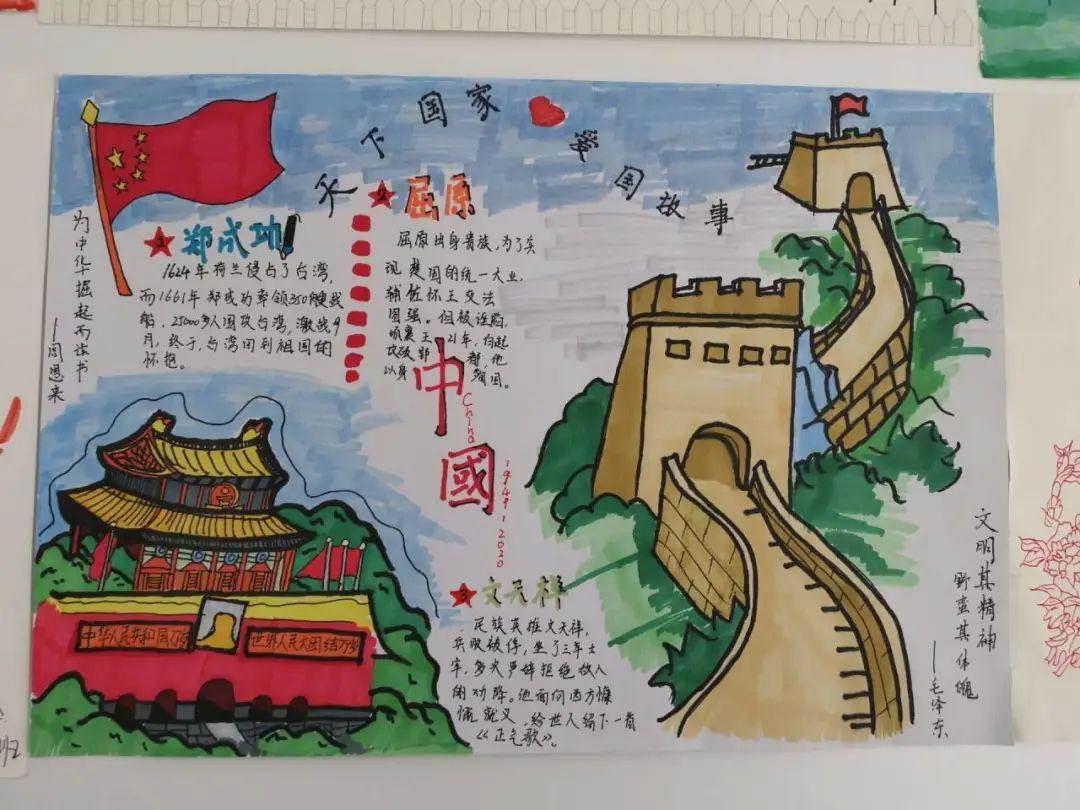 天下国家 爱国故事
为中华崛起而读书
——周恩来
1 郑成功
1624年荷兰侵占了台湾,
而1661年郑成为率领350艘战
船,25000多人围攻台湾,激战9
月,终于,台湾回到祖国的
怀抱。
2 屈原
屈原出身贵族,为了实
现楚国的统一大业,
辅佐怀王变法
图强。但被诬陷,
顷襄王21年,白起
攻破郢都,他
以身殉国。
中國
China
1949-2020
3 文天祥
民族英雄文天祥,
兵败被俘,坐了三年土
牢,多次严肆拒绝敌人
的功降。他面向西方慷
慨就义,给世人留下一首
《正气歌》。
中华人民共和国万岁
世界人民大团结万岁
文明其精神
野蛮其体魄
——毛泽东